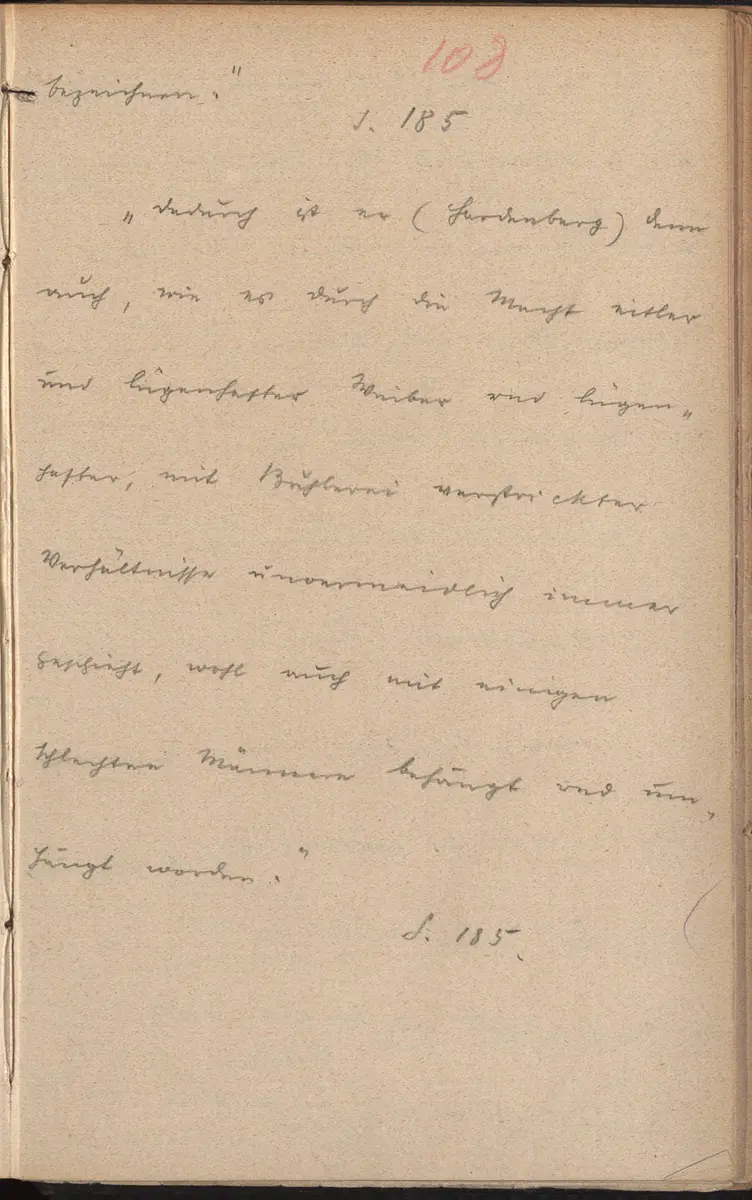 108
bezeichnen."
S. 185
„Dadurch ist er (Hardenberg) denn
auch, wie es durch die Macht eitler
und lügenhafter Weiber und lügen„
hafter, mit Buhlerei verstrickter
Verhältnisse unvermeidlich immer
geschieht, wohl auch mit einigen
schlechten Männern behängt und um„
hängt worden."
S. 185.